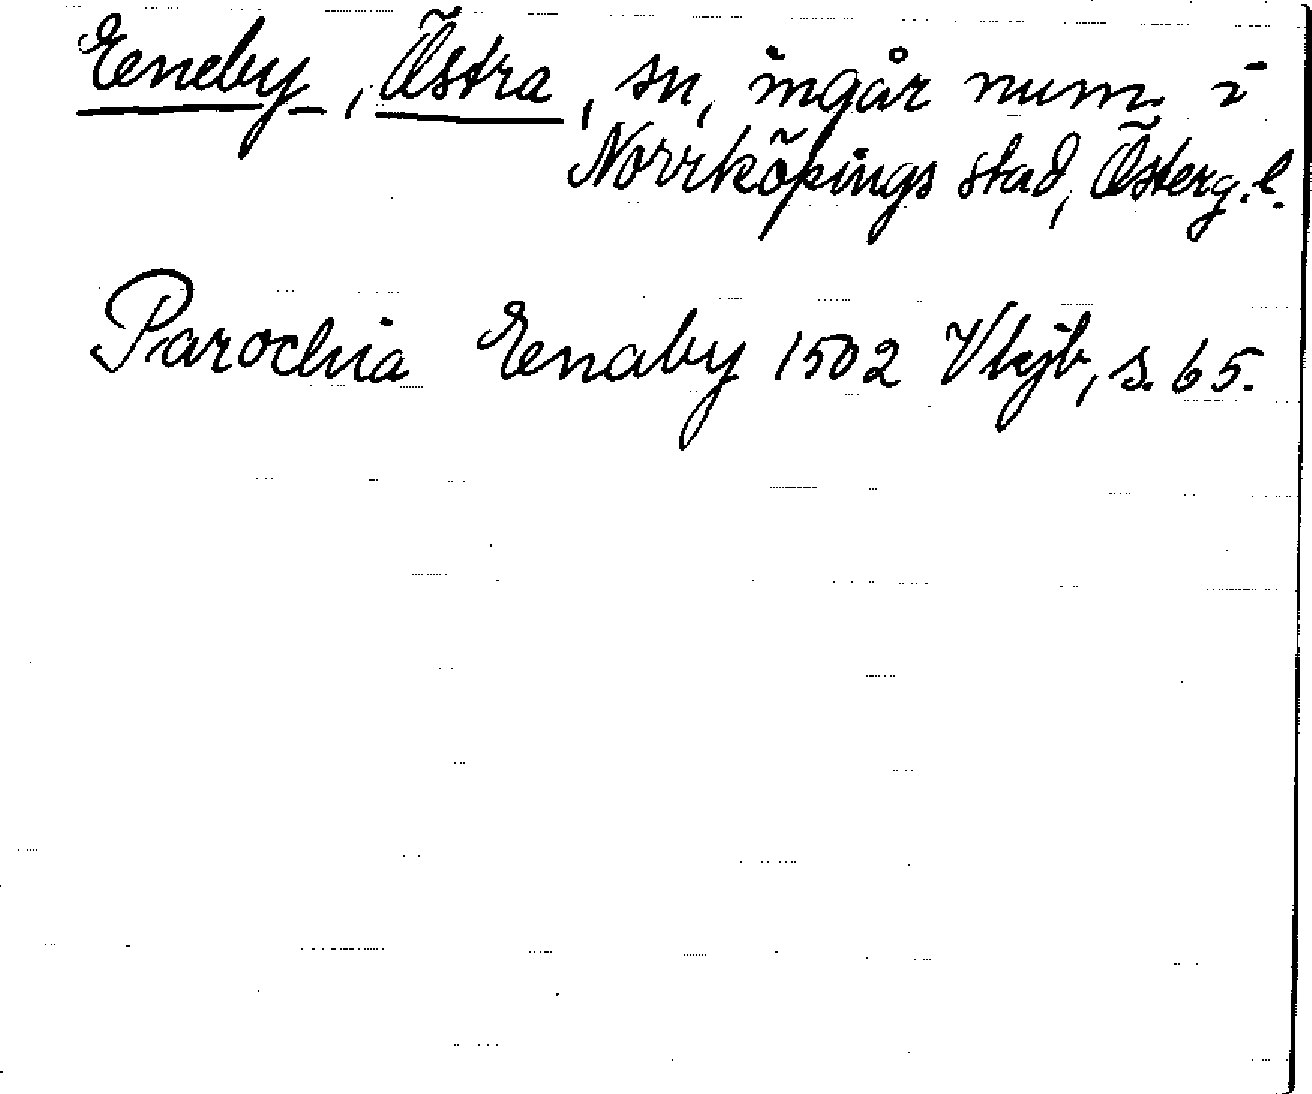 Eneby, Östra, sn, ingår num. i
Norrköpings stad, Österg. l.
Parochia Enaby 1502 Vkjb, s. 65.